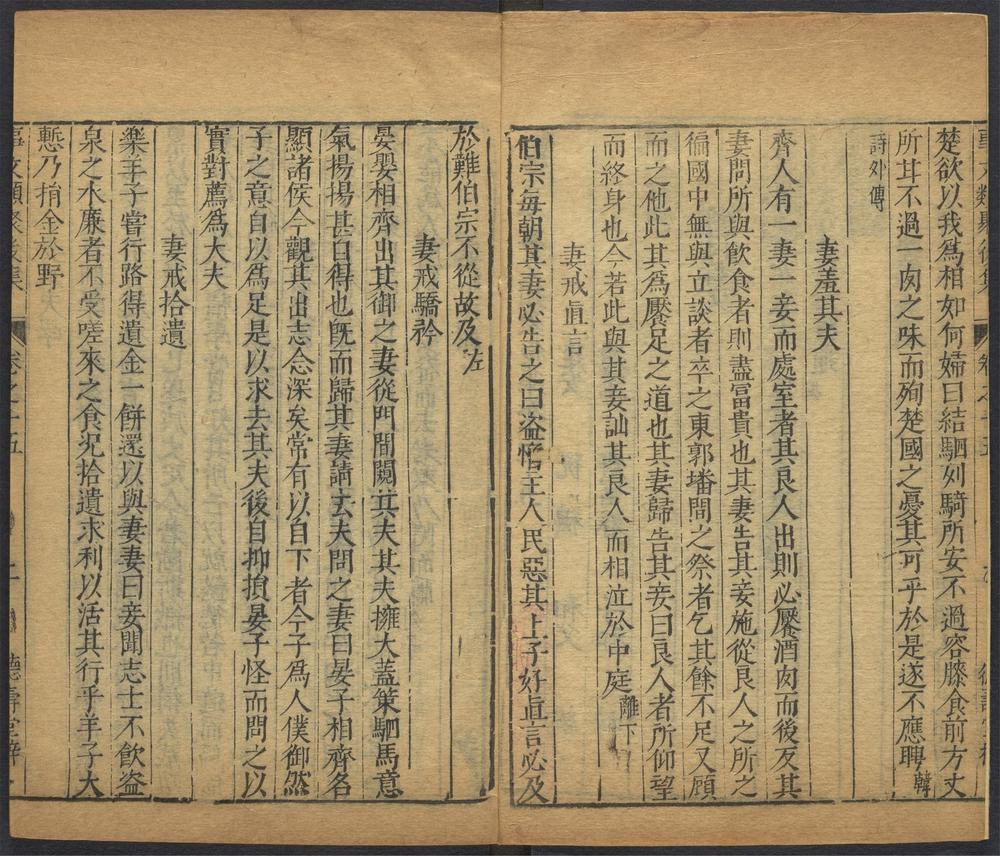 事文類聚後集 卷之十五
楚欲以我爲相如何婦曰結駟列騎所安不過容膝食前方丈
所耳不過一肉之味而殉楚國之憂其可乎於是遂不應聘韓
詩外傳
妻羞其夫
齊人有一妻一妾而處室者其良人出則必饜酒肉而後反其
妻問所與飲食者則盡富貴也其妻告其妾施從良人之所之
徧國中無與立談者卒之東郭墦間之祭者乞其餘不足又顧
而之他此其爲饜足之道也其妻歸告其妾曰良人者所仰望
而終身也今若此與其妾訕其良人而相泣於中庭離下
妻戒直言
伯宗每朝其妻必告之曰盗憎主人民惡其上子好直言必及
於難伯宗不從故及左
妻戒驕矜
晏嬰相齊出其御之妻從門間闚其夫其夫擁大蓋策駟馬意
氣揚揚甚自得也旣而歸其妻請去夫問之妻曰晏子相齊名
顯諸侯今觀其出志念深矣常有以自下者今子爲人僕御然
子之意自以爲足是以求去其夫後自抑損晏子怪而問之以
實對薦爲大夫
妻戒拾遺
樂羊子嘗行路得遺金一餅還以與妻妻曰妾聞志士不飲盗
泉之水廉者不受嗟來之食況拾遺求利以活其行乎羊子大
慙乃捐金於野
事文類聚後集 卷之十五 德壽堂梓